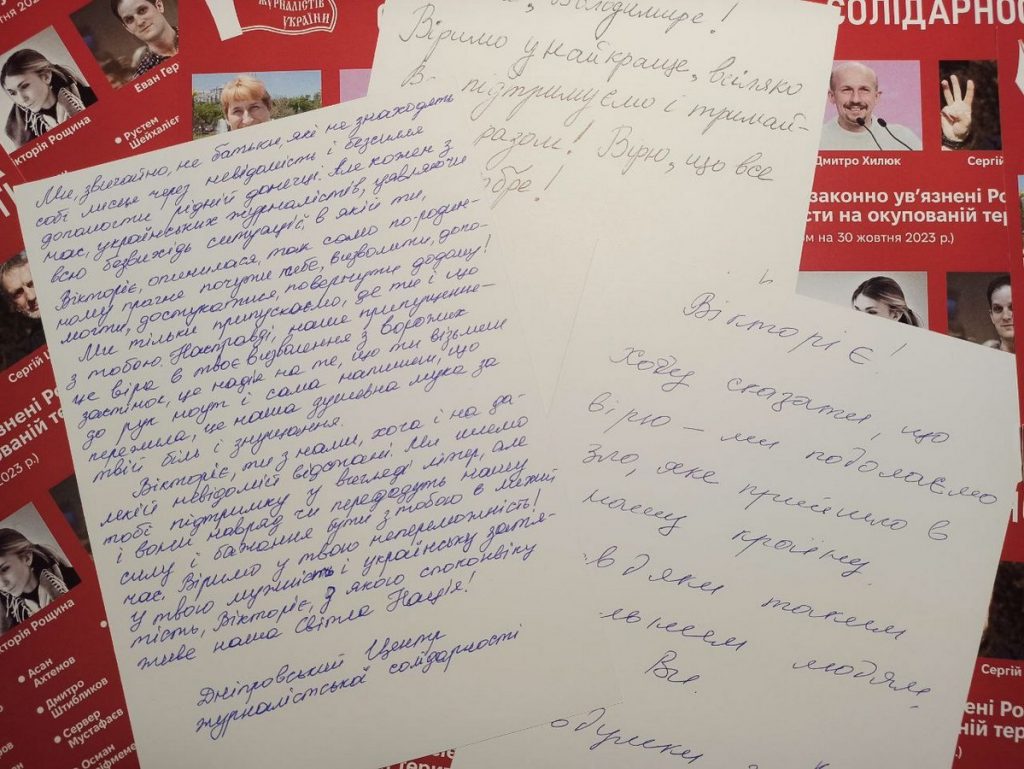 ЖУРНАЛІСТІВ
УКРАЇНИ
СОЛІДАРНОС
Еван Гер
кторія Рощина
Рустем
Шейхалієв
Дмитро Хилюк
Сергій
законно ув’язнені Ро
сти на окупованій тер
ом на 30 жовтня 2023 р.)
Володимире!
Віримо у найкраще, всіляко
підтримуємо і тримай-
разом! Вірю, що все
бре!
Ми, звичайно, не батьки, які не знаходять
собі місця через невідомість і безсилля
допомогти рідній донечці. Але кожен з
нас, українських журналістів, уявляючи
всю безвихідь ситуації, в якій ти,
Вікторіє, опинилася, так само по-родин-
ному прагне почути тебе, визволити, допо-
могти, достукатися, повернути додому!
Ми тільки припускаємо, де ти і що
з тобою. Насправді, наше припущення-
це віра в твоє визволення з ворожих
застінок, це надія на те, що ти візьмеш
до рук ноут і сама напишеш, що
пережила, це наша душевна мука за
твій біль і знущання.
Вікторіє, ти з нами, хоча і на да-
лекій невідомій відстані. Ми шлемо
тобі підтримку у вигляді літер, але
і вони навряд чи передадуть нашу
силу і бажання бути з тобою в тяжкий
час. Віримо у твою непереможність!
У твою мужність і українську затя-
тість, Вікторіє, з якою споконвіку
живе наша Світла Нація!
Дніпровський Центр
журналістської солідарності
Вікторіє!
Хочу сказати, що
вірю – ми подолаємо
зло, яке прийшло в
нашу країну.
таким
людям,
Ви.
язнені Ро
ованій тер
2023 р.)
кторія Рощина
Асан
Ахтемов
Дмитро
Штибликов
Сервер
Мустафаєв
Осман
Сергій